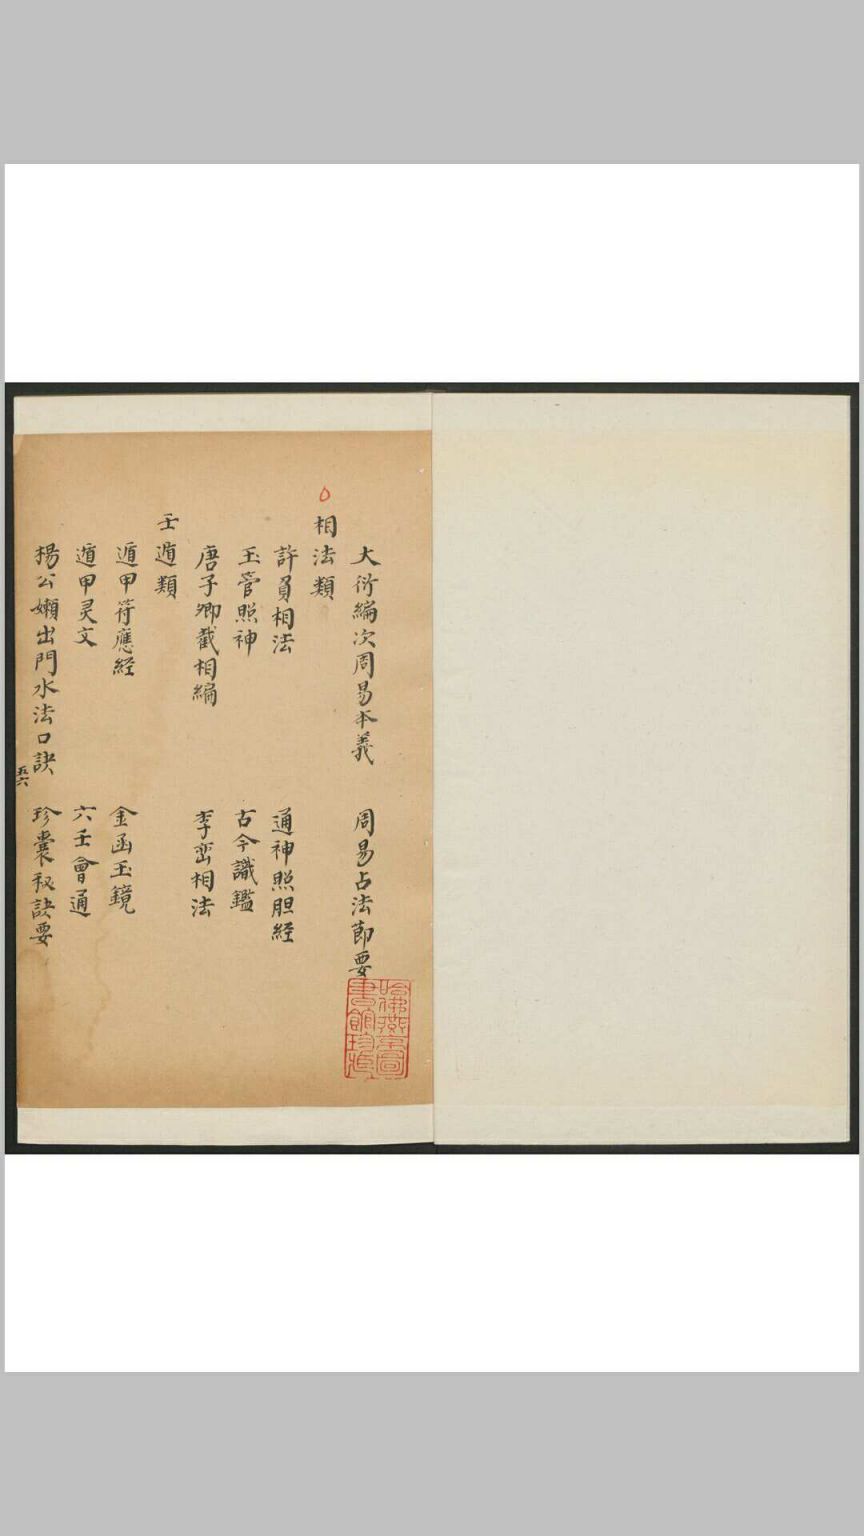 大衍編次周易本義 周易占法節要
相法類
許負相法 通神照胆経
玉管照神 古今識鑑
唐子卿截相編 李巒相法
壬遁類
遁甲符應経 金函玉鏡
遁甲灵文 六壬會通
楊公嬾出門水法口訣 珍囊秘訣要
五六
哈佛燕京圖書館珍藏